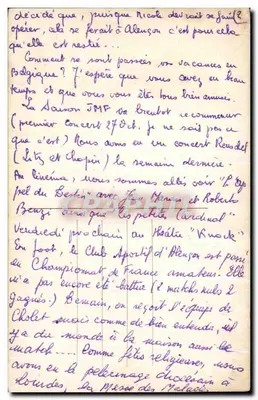 décidé que, puisque Nicole devrait se faire
opérer, elle se ferait à Alençon c'est pour cela
qu'elle est restée...
Comment se sont passées vos vacances en
Belgique ? J'espère que vous avez eu beau
temps et que vous vous êtes bien amusés.
La saison JMF va bientôt recommencer
(premier concert 27 Oct. je ne sais pas ce
que c'est) Nous avons eu un concert
(Litz et Chopin) la semaine dernière.
Au cinéma, nous sommes allés voir "L'Ap
pel du Destin" avec J. Marais et Roberto
Benzi ainsi que "les petits Cardinal"
Vendredi prochain au théâtre "Knock"
En foot, le Club Sportif d'Alençon est passé
en Championnat de France amateur. Elle
n'a pas encore été battue (2 matchs nuls 2
gagnés) Demain, on reçoit l'équipe de
Cholet comme de bien entendu, et
y a du monde à la maison aussi le
match... Comme fêtes religieuses, nous
avons eu le pélerinage diocésain à
Lourdes, la Messe des Malades